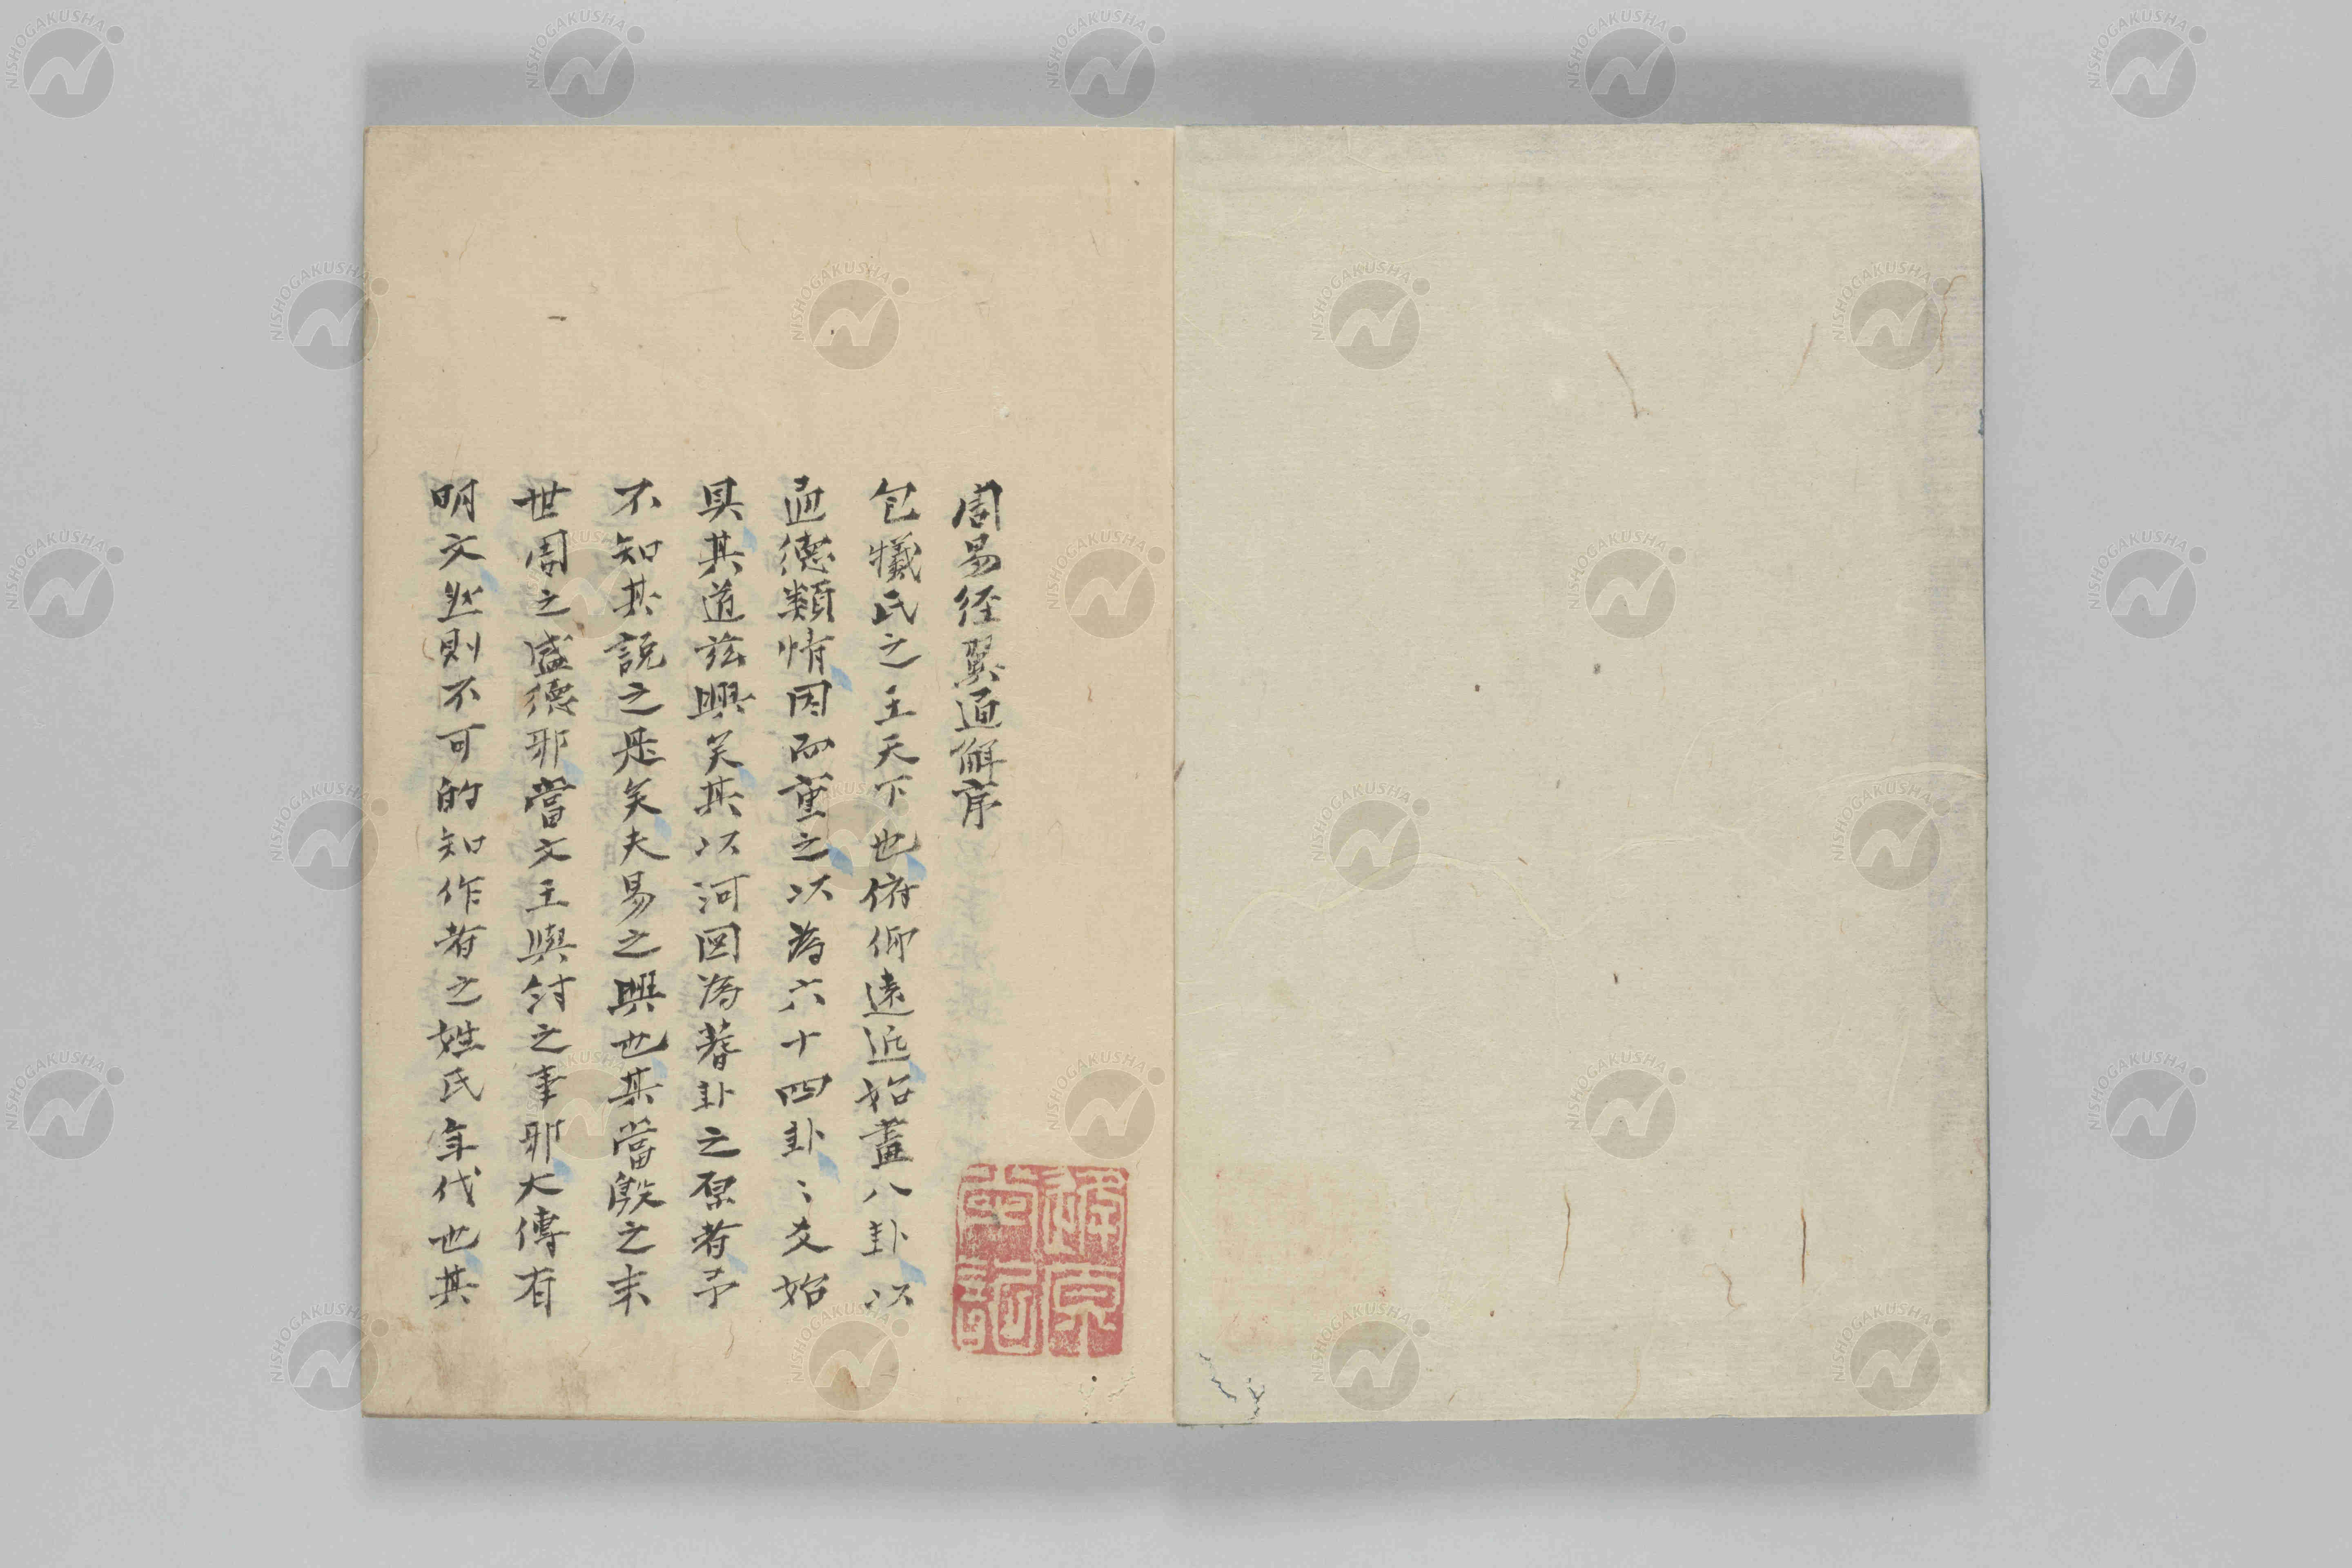 周易経翼通解序
包犧氏之王天下也俯仰遠近始畫八卦以
通德類情因而重之以為六十四卦〻爻始
具其道玆興矣其以河図為蓍卦之原者予
不知其説之是矣夫易之興也其當殷之末
世周之盛德邪當文王與紂之事邪大傳有
明文然則不可的知作者之姓氏年代也其
NISHOGAKUSHA